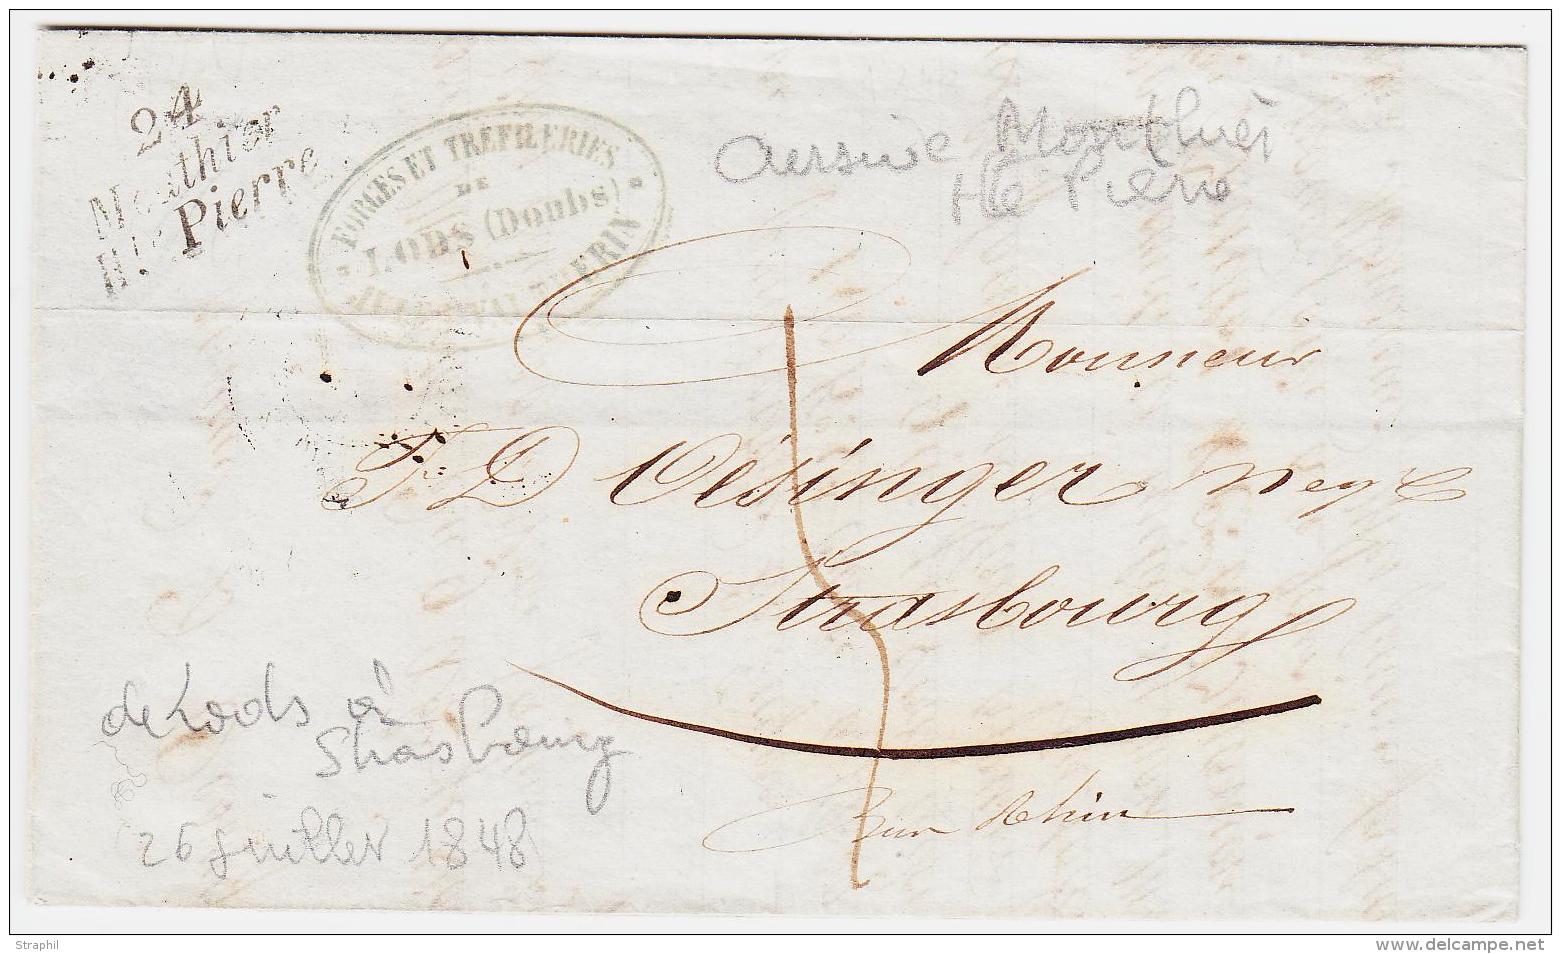 24
Mouthier
Hte Pierre
FORGES ET TREFILERIES
DE
LODS (Doubs)
cursive Mouthier
Hte Pierre
Monsieur
F. D. Oesinger neg t
Strasbourg
de Lods à
Strasbourg
Bas Rhin
26 juillet 1848
Straphil
www.delcampe.net